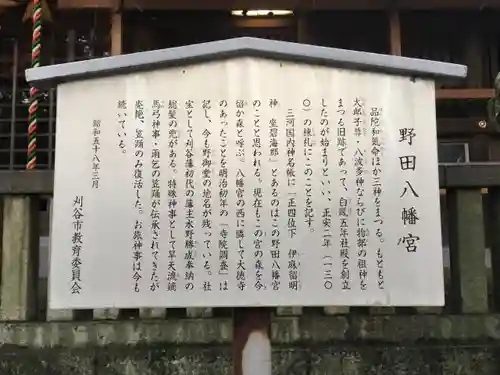 野田八幡宮
品陀和気命ほか三神をまつる。もともと
大郎子尊、八波多神ならびに物部の祖神を
まつる旧跡であって、白鳳五年社殿を創立
したのが始まりといい、正安二年（一三〇
〇）の棟札にこのことを記す。
三河国内神名帳に「正四位下 伊麻留明
神 坐碧海郡」とあるのはこの野田八幡宮
のことと思われる。現在もこの宮の森を今
留か森と呼ぶ。八幡宮の西に隣して大徳寺
のあったことを明治初年の「寺院調査」は
記し、今も野御堂の地名が残っている。社
宝として刈谷藩初代の藩主水野勝成奉納の
総髪の兜がある。特殊神事として旱天流鏑
馬弓神事・雨乞の笠踊が伝承されてきたが
楽、笠踊のみ復活した。お鍬神事は今も
続いている。
昭和五十八年三月
刈谷市教育委員会